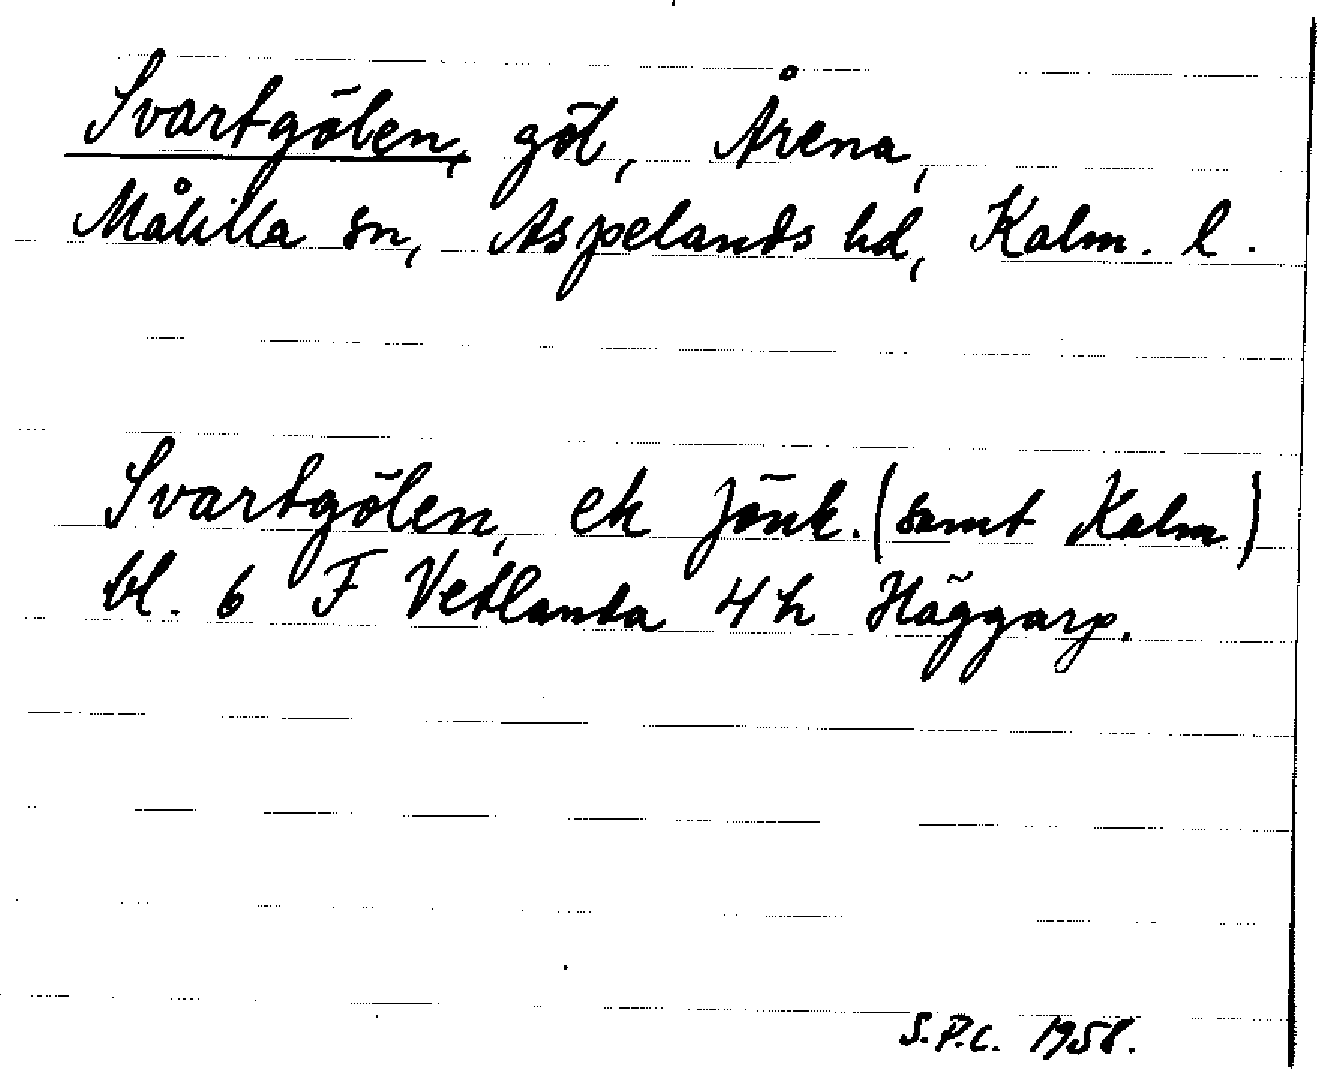 Svartgölen, göl, Årena,
Målilla sn, Aspelands hd, Kalm. l.
Svartgölen, ek Jönk. (samt Kalm)
bl. 6 F Vetlanda 4 h Häggarp.
S.P.C. 1958.